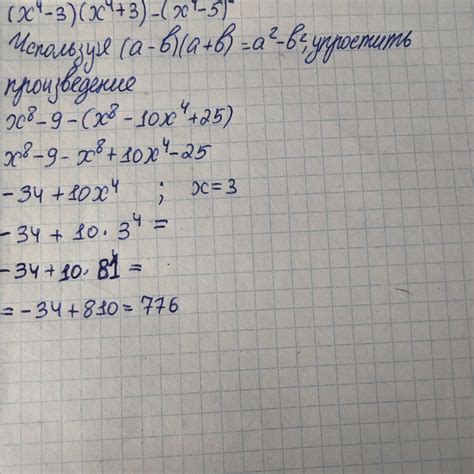 (x⁴-3)(x⁴+3)-(x⁴-5)²
Используя (a-b)(a+b)=a²-b², упростить
произведение
x⁸-9-(x⁸-10x⁴+25)
x⁸-9-x⁸+10x⁴-25
-34+10x⁴ ; x=3
-34+10·3⁴=
-34+10·81=
=-34+810=776